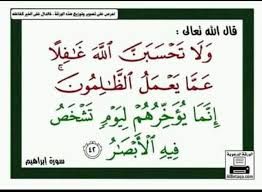 احرص على تصوير وتوزيع هذه الورقة .. فالدال على الخير كفاعله
قال الله تعالى :
وَلَا تَحْسَبَنَّ اللَّهَ غَافِلًا
عَمَّا يَعْمَلُ الظَّالِمُونَ ۚ
إِنَّمَا يُؤَخِّرُهُمْ لِيَوْمٍ تَشْخَصُ
فِيهِ الْأَبْصَارُ ٤٢
سورة إبراهيم
الورقة الدعوية